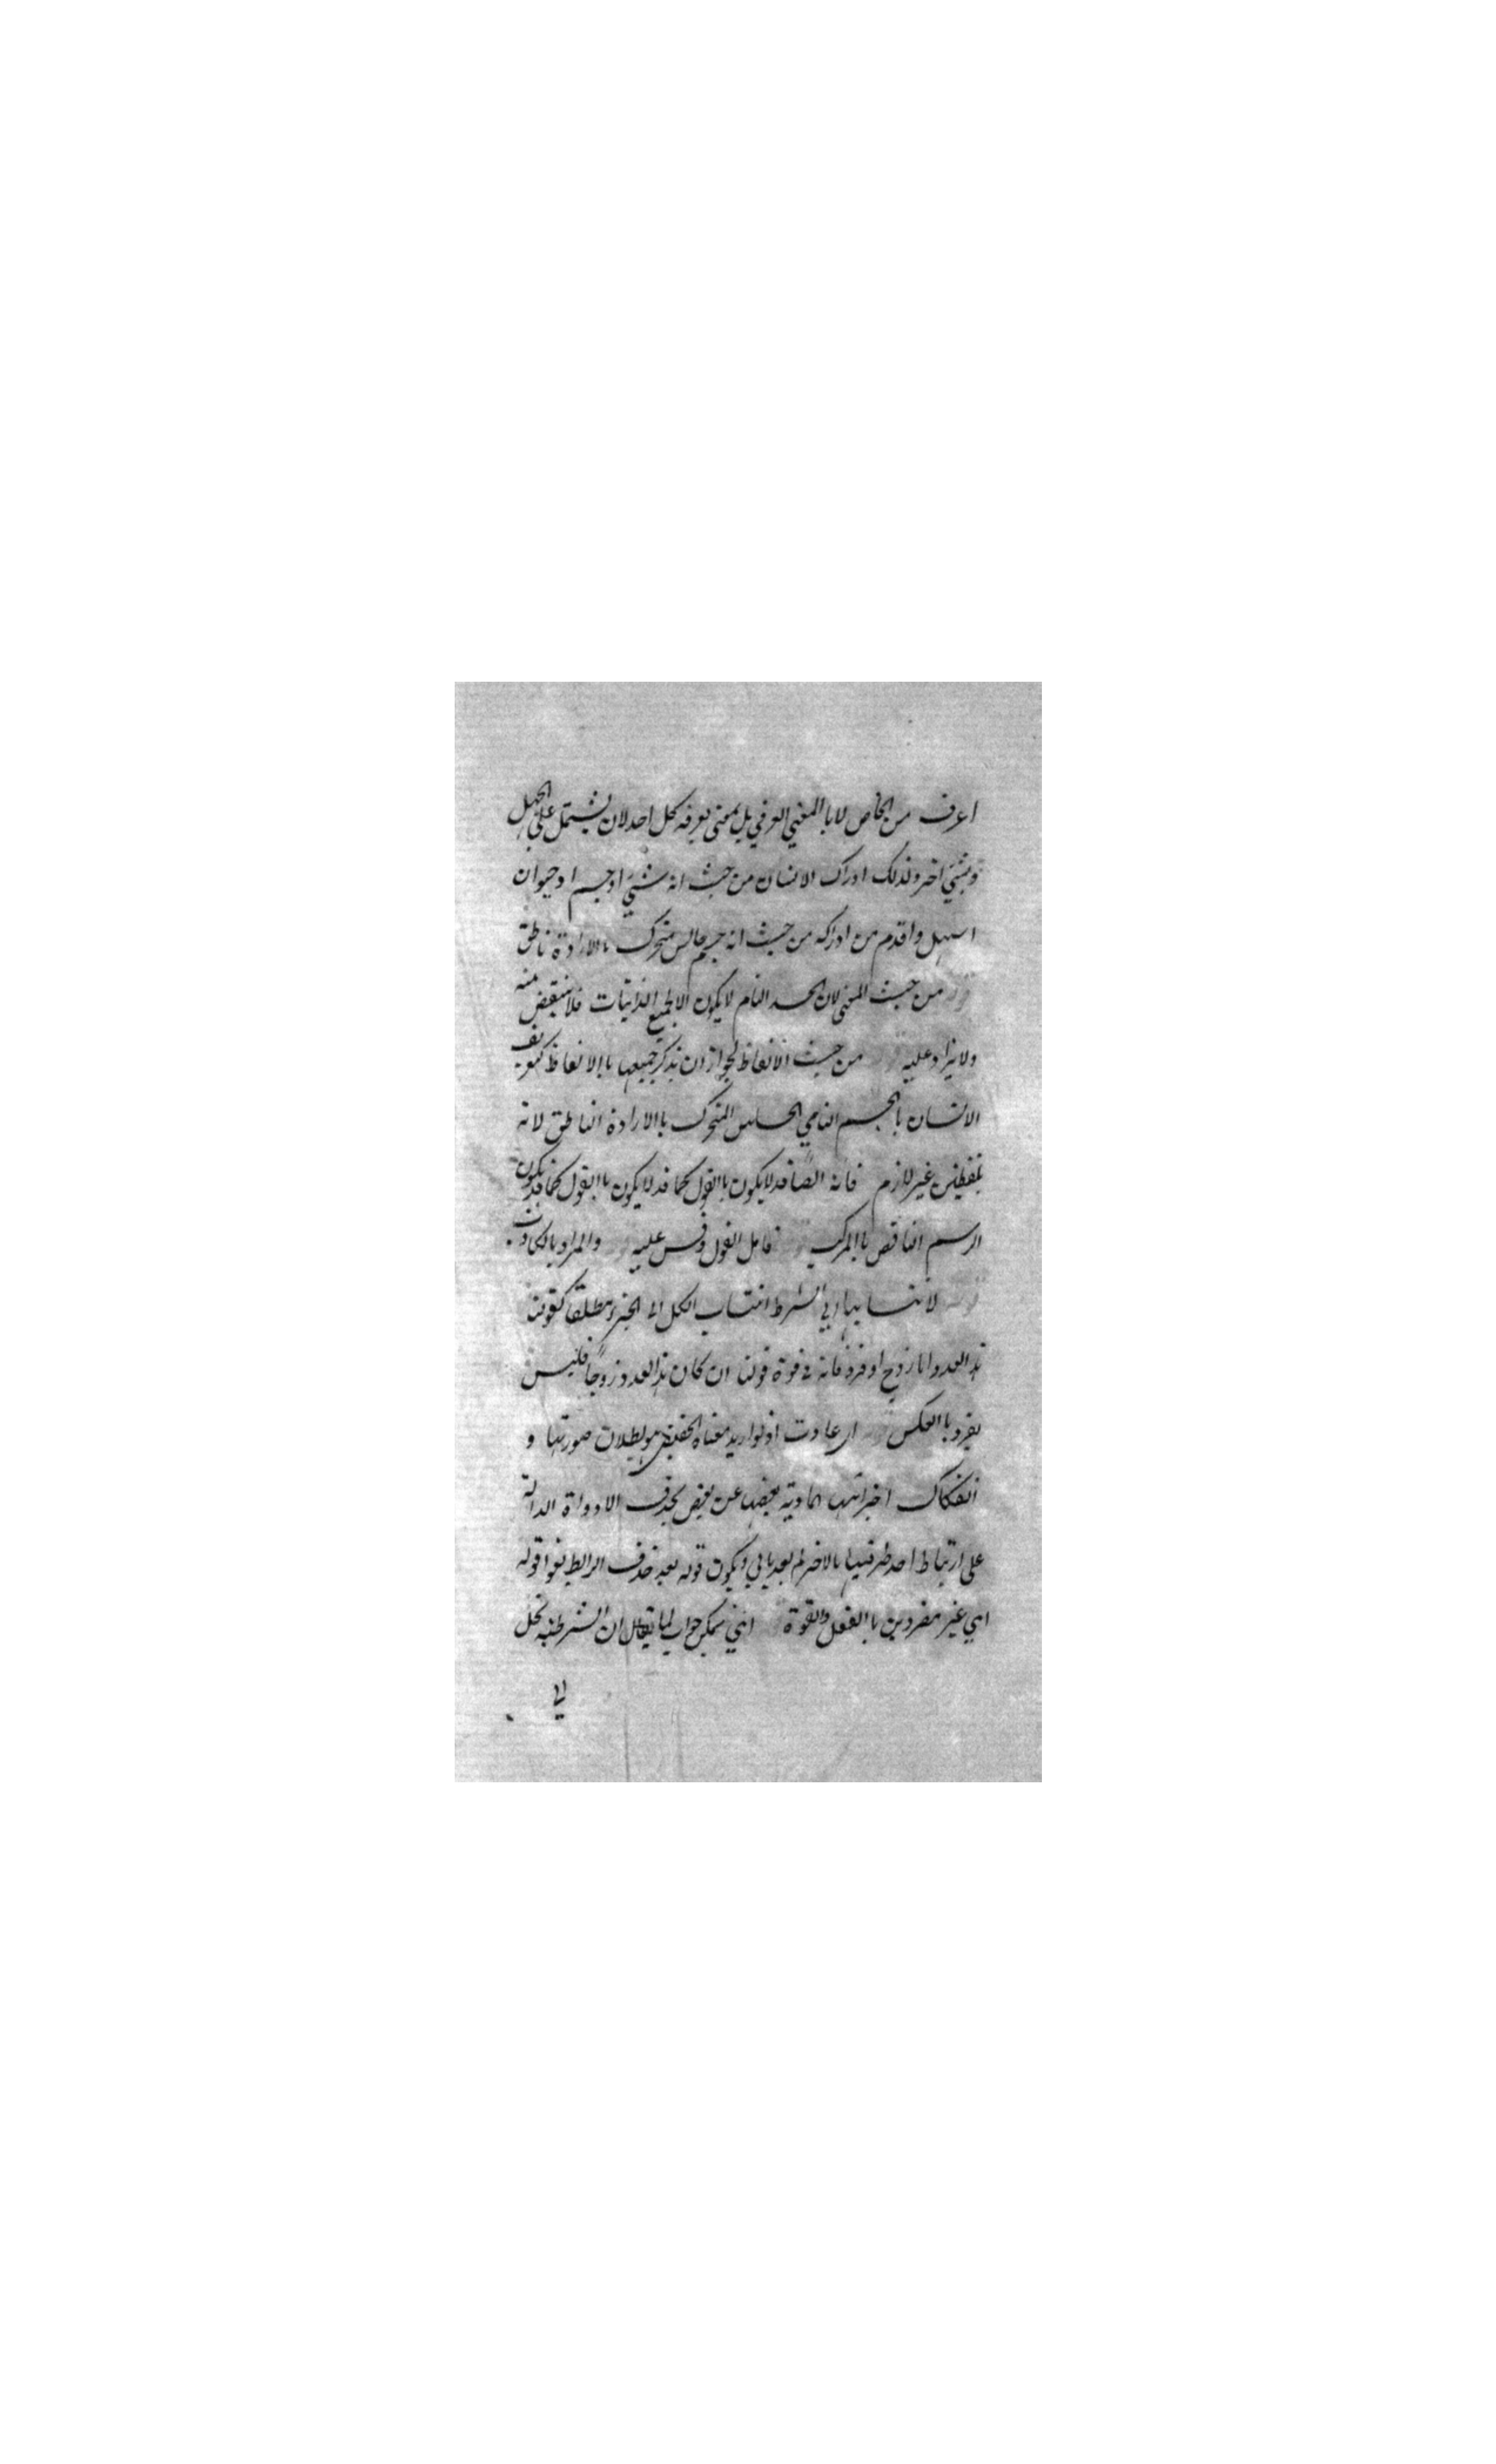 اعرف من الخاص لا با المعني العرفي بل بمعني يعرفه كل احد لان يشتمل علي الجهل
وبشئ اخر ولذلك ادراك الانسان من حيث انه شئ او جسم او حيوان
اسهل واقدم من ادراكه من حيث انه جسم حاس متحرك بالارادة ناطق
من حيث المعني لان الحد التام لا يكون الا بجميع الذاتيات فلا ينتقض منه
ولا يزاد عليه من حيث الالفاظ لجواز ان يذكر جميعها با الالفاظ كتعريف
الانسان با الجسم النامي الحساس المتحرك با الارادة الناطق لانه
غير لازم فانه ايضا قد لا يكون با القول كما قد لا يكون با القول كما قد يكون
الرسم الناقص با المركب فامل القول وقس عليه والمراد
الي الشرط انتساب الكل الى الجزء مطلقا كقولنا
هذا العدد اما زوج او فرد فانه في قوة قولنا ان كان هذا العدد زوجا فليس
بفرد با العكس اي عادت اذ لو اريد معناه الحقيقي هو بطلان صورتها و
انفكاك اجزائها مادية بعضها عن بعض بحذف الادواة الدالة
علي ارتباط احد طرفيها بالاخر لم يعد يابي ويكون قوله بعد حذف الرابط قوله
اي غير مفردين با الفعل والقوة يمكن جواب لما يقال ان الشرطية تحل
الي